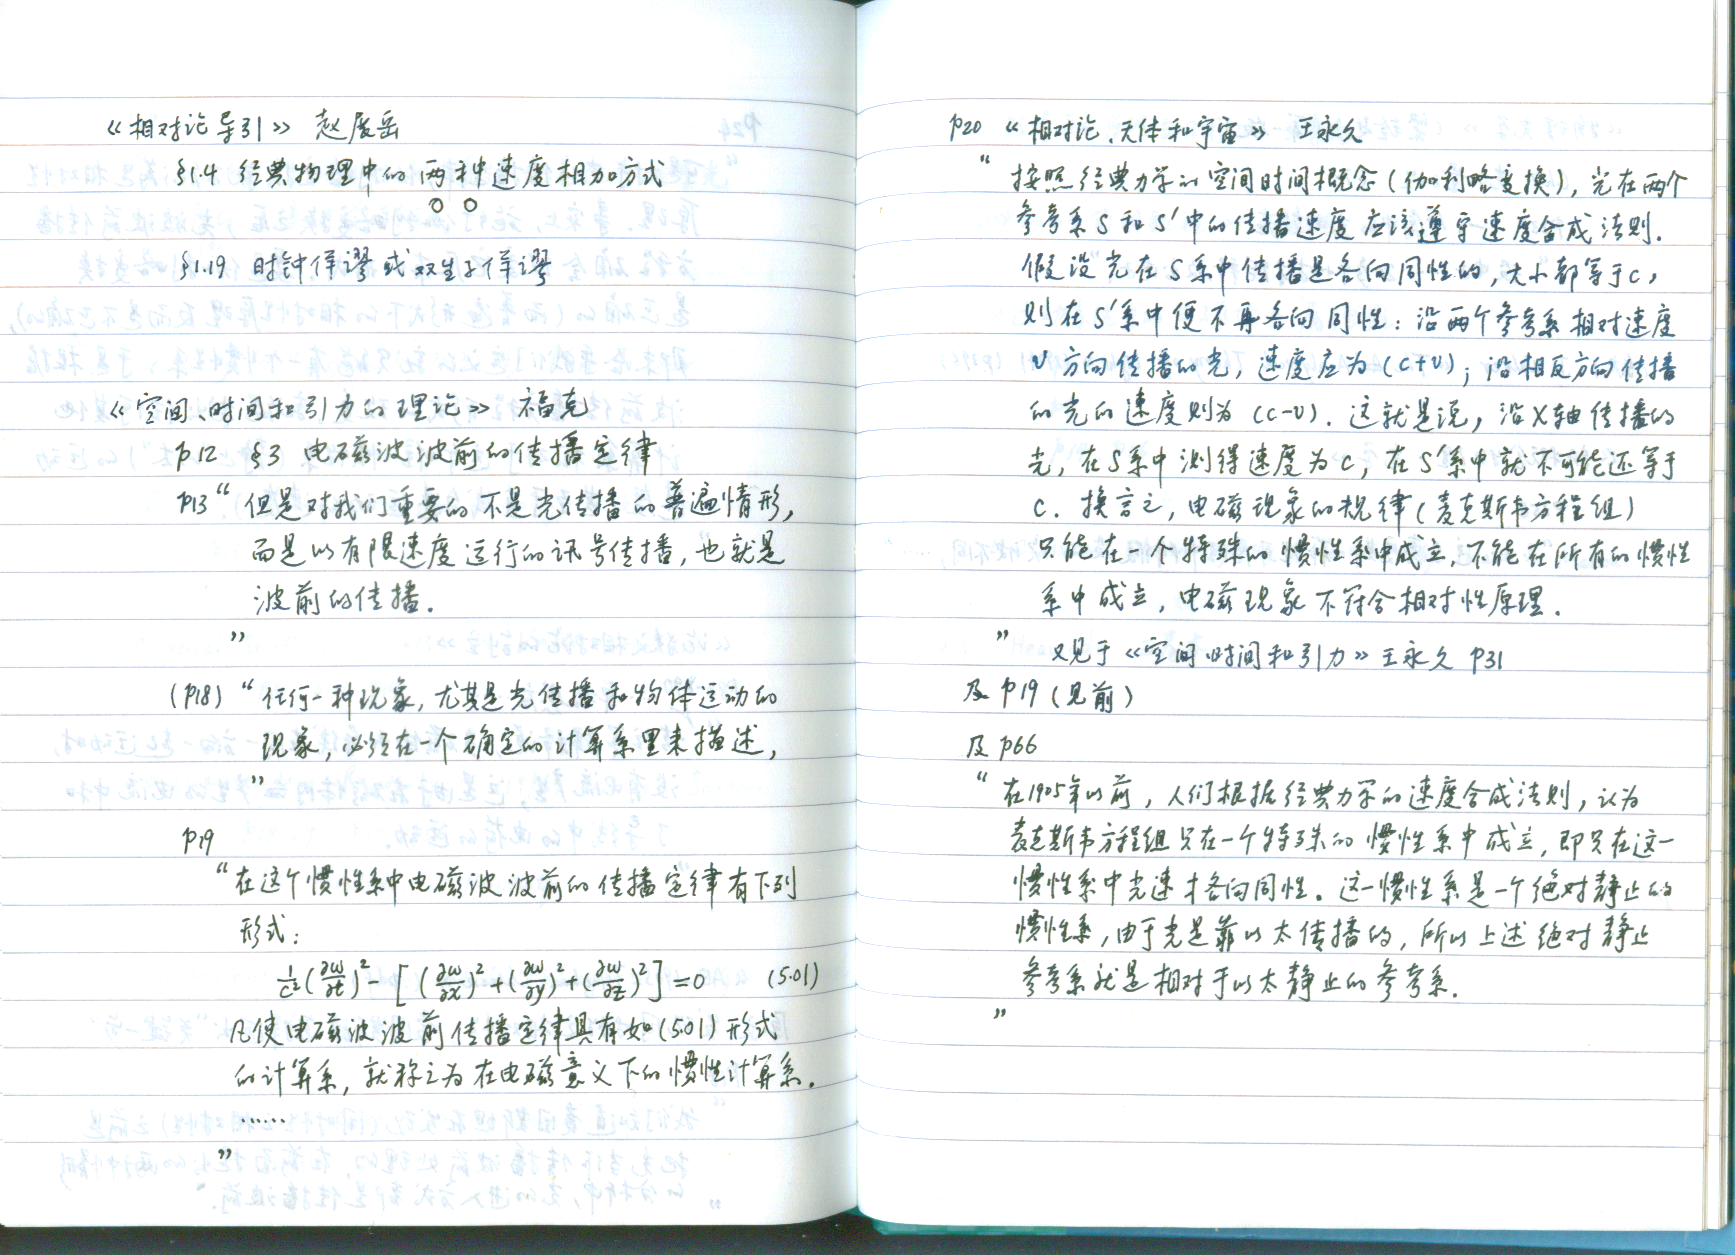 《相对论导引》 赵展岳
§1.4 经典物理中的两种速度相加方式
§1.19 时钟佯谬或双生子佯谬
《空间、时间和引力的理论》 福克
P12 §3 电磁波波前的传播定律
P13 “但是对我们重要的不是光传播的普遍情形,
而是以有限速度运行的讯号传播,也就是
波前的传播.
”
(P18) “任何一种现象,尤其是光传播和物体运动的
现象,必须在一个确定的计算系里来描述,
”
P19
“在这个惯性系中电磁波波前的传播定律有下列
形式:
1/c²(∂ω/∂t)² - [(∂ω/∂x)² + (∂ω/∂y)² + (∂ω/∂z)²] = 0 (5.01)
凡使电磁波波前传播定律具有如(5.01)形式
的计算系,就称之为在电磁意义下的惯性计算系.
……
”
P20 《相对论、天体和宇宙》 王永久
“按照经典力学的空间时间概念(伽利略变换),光在两个
参考系S和S′中的传播速度应该遵守速度合成法则.
假设光在S系中传播是各向同性的,大小都等于c,
则在S′系中便不再各向同性:沿两个参考系相对速度
υ方向传播的光,速度应为(c+υ);沿相反方向传播
的光的速度则为(c-υ).这就是说,沿X轴传播的
光,在S系中测得速度为c,在S′系中就不可能还等于
c.换言之,电磁现象的规律(麦克斯韦方程组)
只能在一个特殊的惯性系中成立,不能在所有的惯性
系中成立,电磁现象不符合相对性原理.
” 又见于《空间、时间和引力》王永久 P31
及P19(见前)
及P66
“在1905年以前,人们根据经典力学的速度合成法则,认为
麦克斯韦方程组只在一个特殊的惯性系中成立,即只在这一
惯性系中光速才各向同性。这一惯性系是一个绝对静止的
惯性系,由于光是靠以太传播的,所以上述绝对静止
参考系就是相对于以太静止的参考系.
”